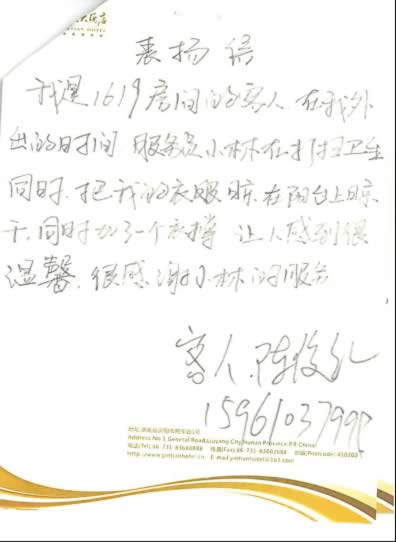 大酒店
TIAN HOTEL
表扬信
我是1619房间的客人 在我外
出的时间 服务员小林在打扫卫生
同时,把我的衣服晾在阳台上晾
干,同时加了一个衣撑 让人感到很
温馨,很感谢小林的服务
客人,陈俊
159610379
Address:No.1 General Road,Liuyang City,Hunan Province P.R.China
电话(Tel):86-731-83688888 传真(Fax):86-731-83662688 邮编(Postcode):410300
http://www.yintianhotel.com E-mail:yintianhotel@163.com